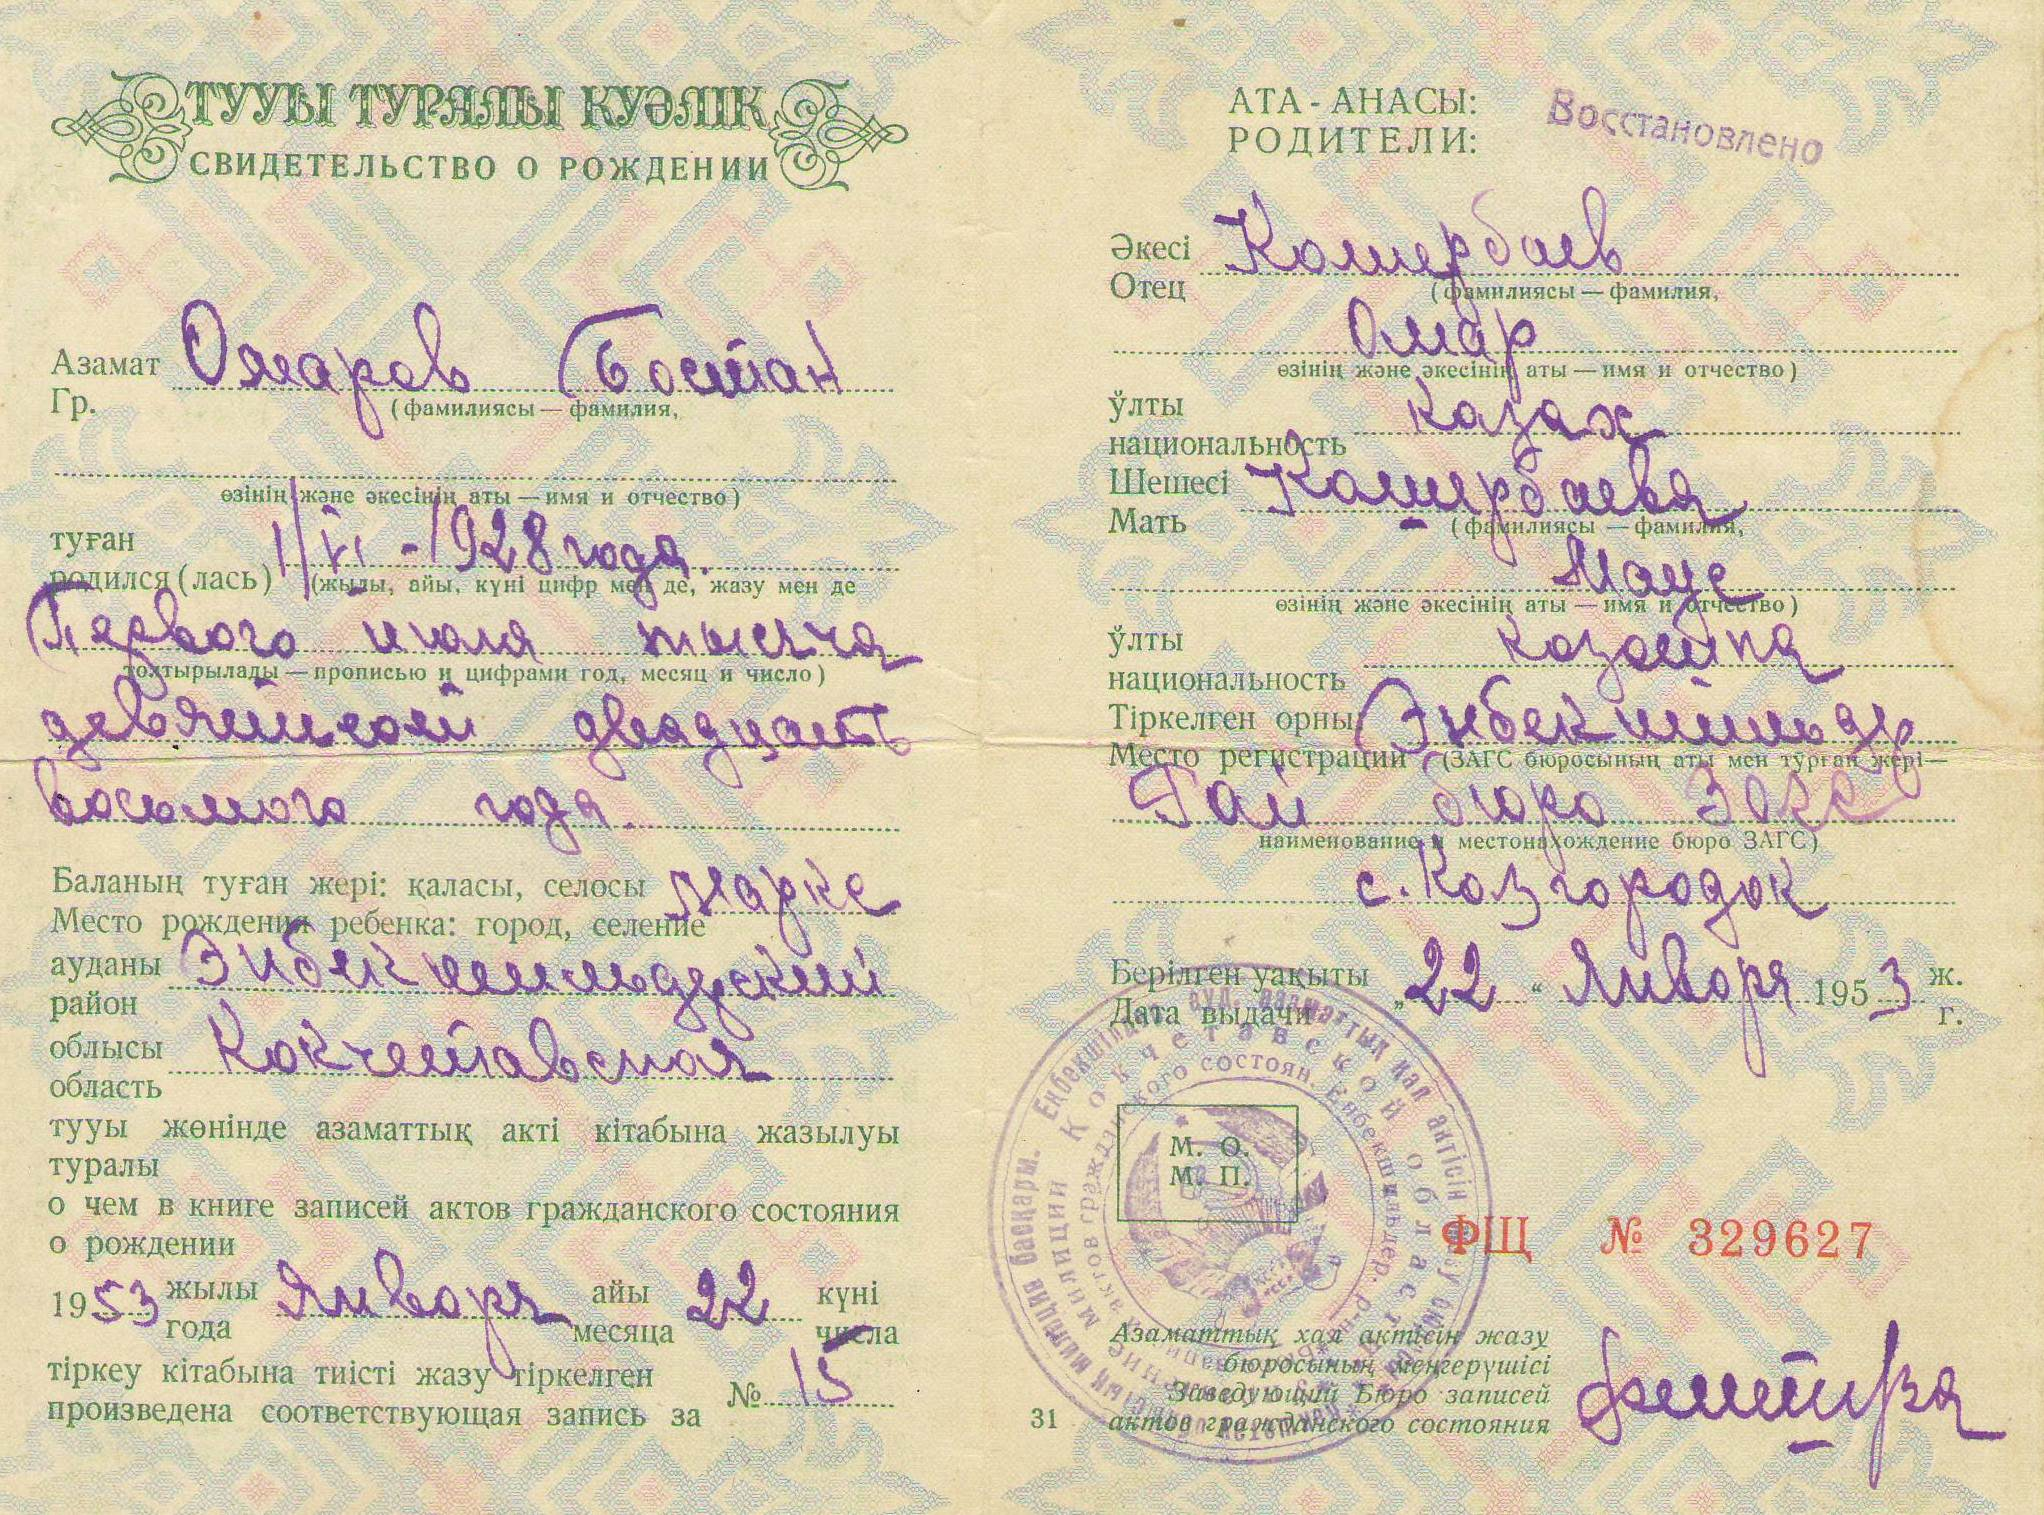 ТУУЫ ТУРАЛЫ КУӘЛІК
СВИДЕТЕЛЬСТВО О РОЖДЕНИИ
Азамат
Гр. Омаров Бостан
(фамилиясы — фамилия,
өзінің және әкесінің аты — имя и отчество)
туған
родился (лась) 1/VII - 1928 года.
(жылы, айы, күні цифр мен де, жазу мен де
Первого июля тысяча
толтырылады — прописью и цифрами год, месяц и число)
девятьсот двадцать
восьмого года.
Баланың туған жері: қаласы, селосы Марке
Место рождения ребенка: город, селение
ауданы
район Энбекшильдерский
облысы
область Кокчетавская
тууы жөнінде азаматтық акті кітабына жазылуы
туралы
о чем в книге записей актов гражданского состояния
о рождении
1953 жылы
года Января айы
месяца 22 күні
числа
тіркеу кітабына тиісті жазу тіркелген
произведена соответствующая запись за № 15
АТА - АНАСЫ:
РОДИТЕЛИ:
Восстановлено
Әкесі
Отец Кошербаев
(фамилиясы — фамилия,
Омар
өзінің және әкесінің аты — имя и отчество)
ўлты
национальность Казах
Шешесі
Мать Кошербаева
(фамилиясы — фамилия,
өзінің және әкесінің аты — имя и отчество)
ўлты
национальность казашка
Тіркелген орны Энбекшильдер
Место регистрации (ЗАГС бюросының аты мен турған жері —
Рай бюро ЗАГС
наименование и местонахождение бюро ЗАГС)
с. Казгородок
Берілген уақыты
Дата выдачи „22“ Января 1953 ж.
г.
М. О.
М. П.
ФЩ № 329627
Азаматтық хал актісін жазу
бюросының меңгерушісі
Заведующий Бюро записей
актов гражданского состояния
31